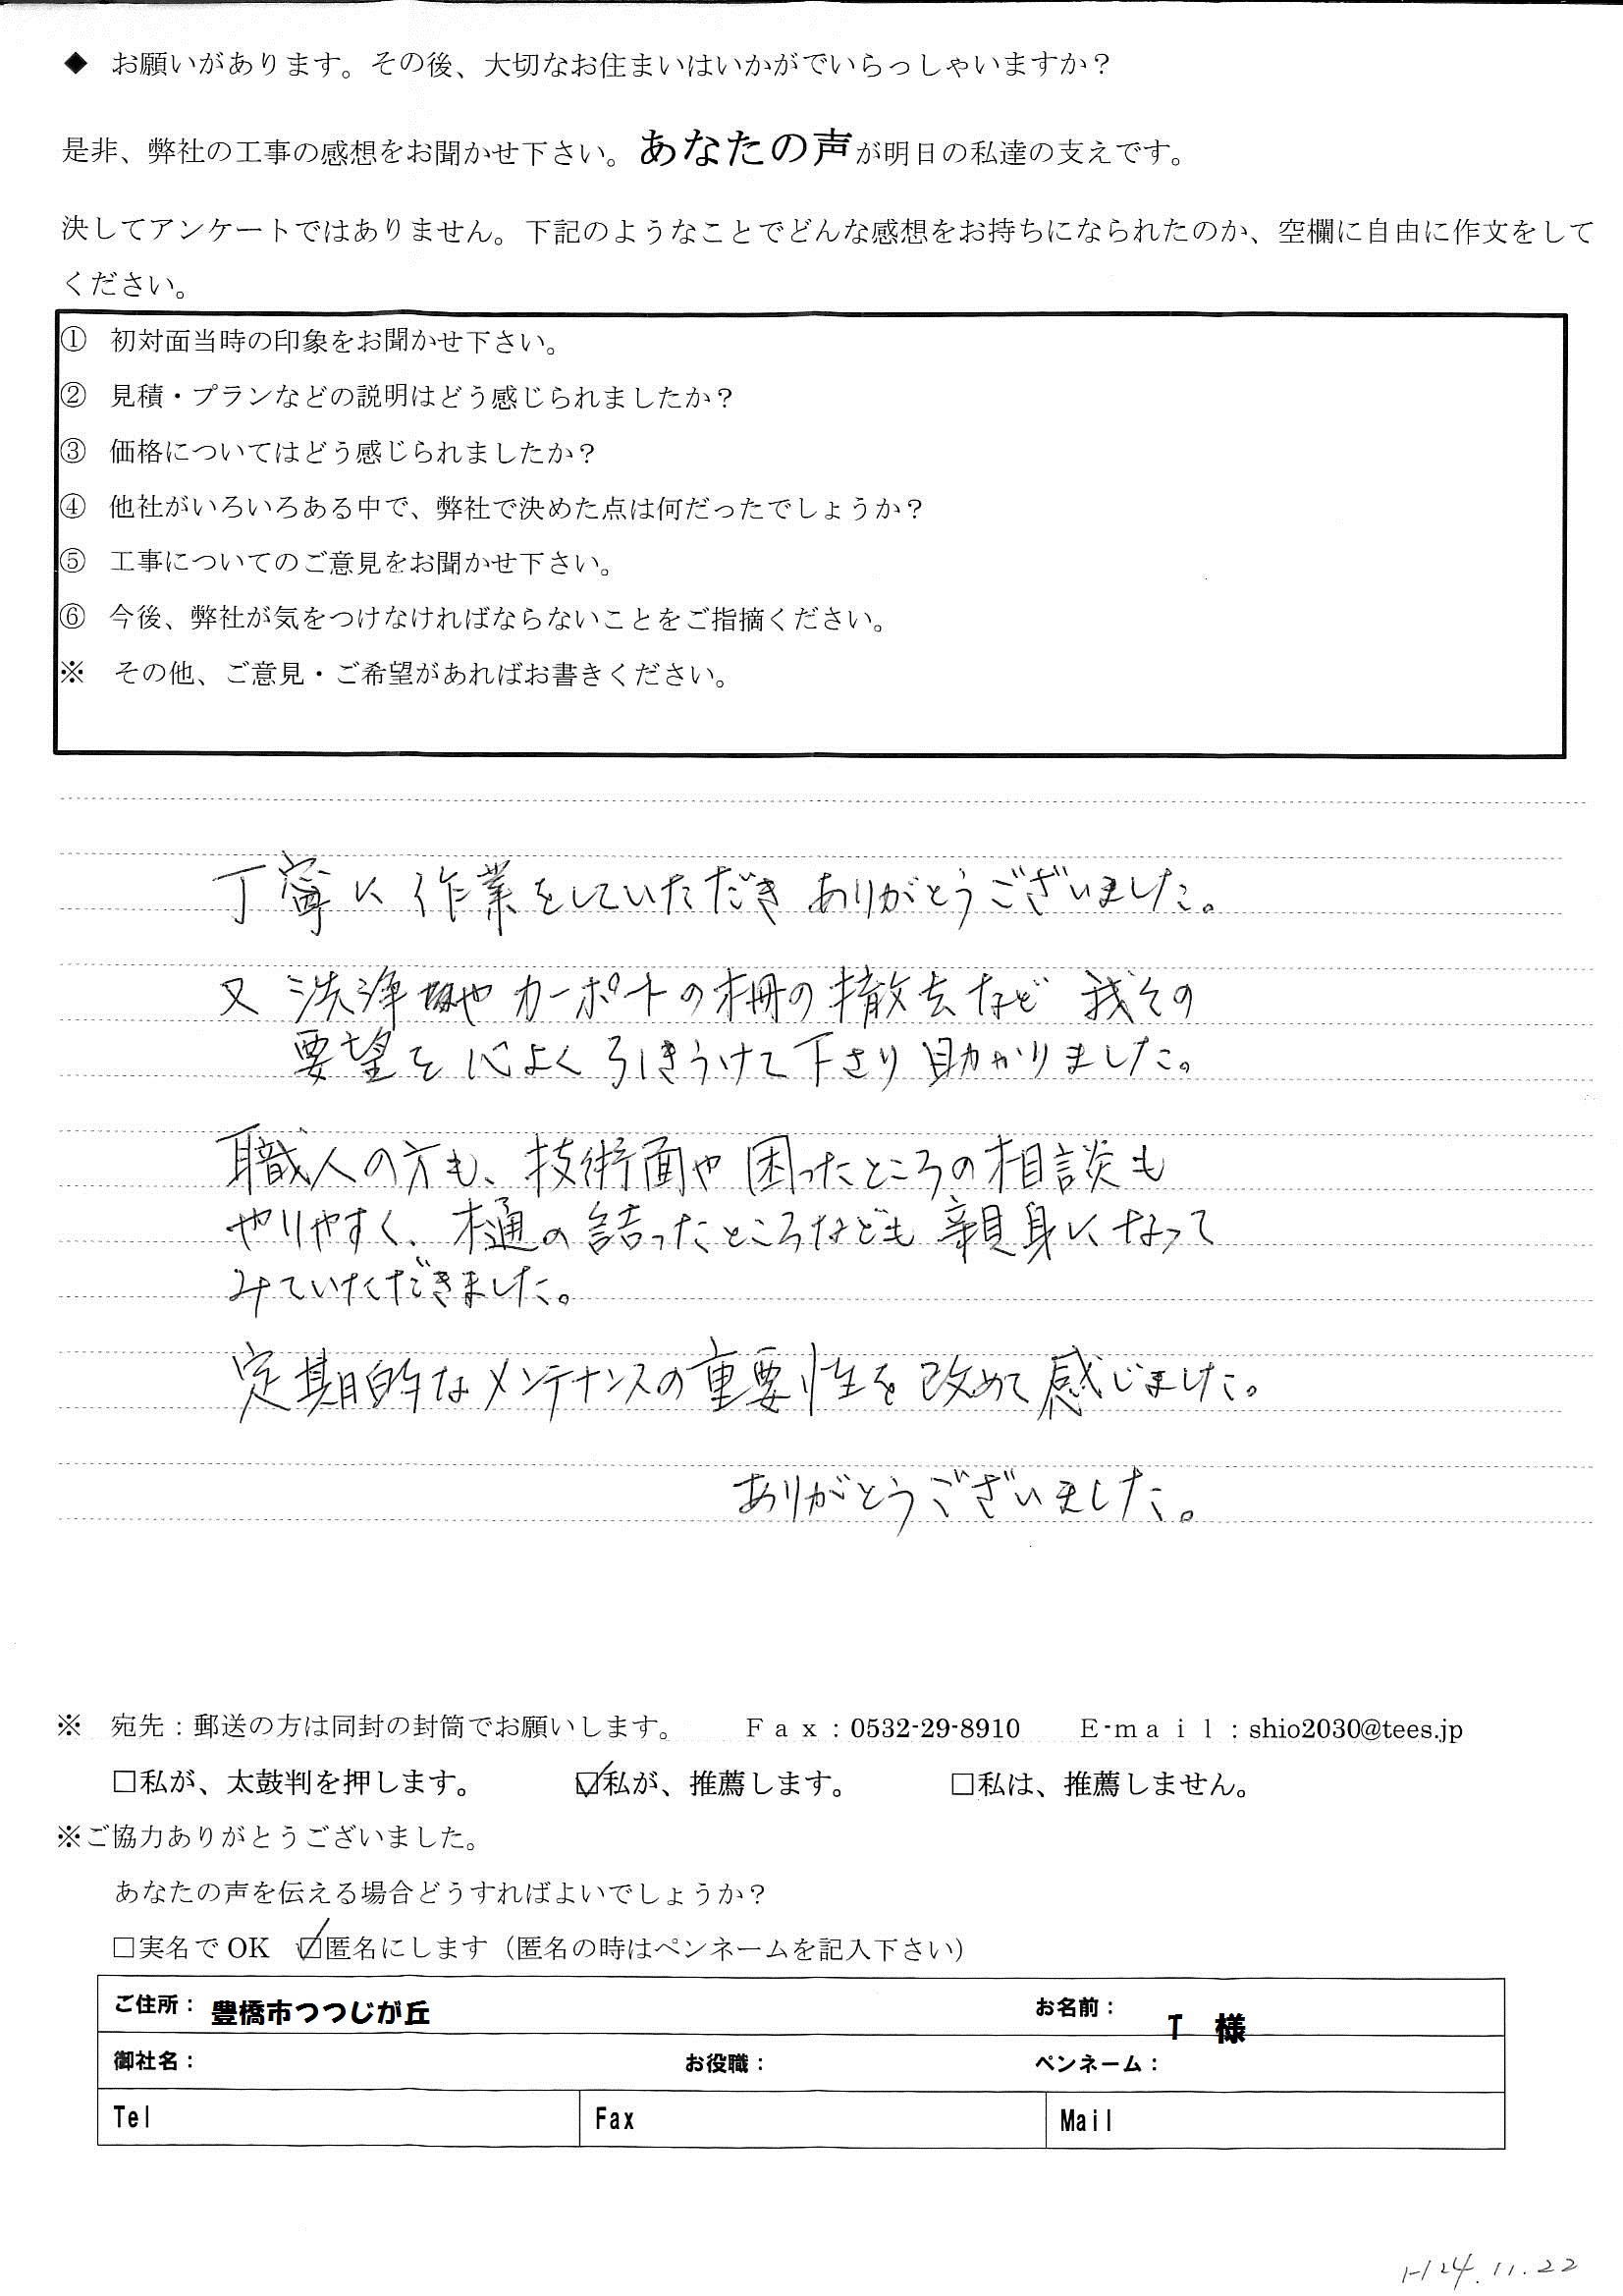 ◆ お願いがあります。その後、大切なお住まいはいかがでいらっしゃいますか？
是非、弊社の工事の感想をお聞かせ下さい。あなたの声が明日の私達の支えです。
決してアンケートではありません。下記のようなことでどんな感想をお持ちになられたのか、空欄に自由に作文をして
ください。
① 初対面当時の印象をお聞かせ下さい。
② 見積・プランなどの説明はどう感じられましたか？
③ 価格についてはどう感じられましたか？
④ 他社がいろいろある中で、弊社で決めた点は何だったでしょうか？
⑤ 工事についてのご意見をお聞かせ下さい。
⑥ 今後、弊社が気をつけなければならないことをご指摘ください。
※ その他、ご意見・ご希望があればお書きください。
丁寧に作業をしていただきありがとうございました。
又 洗浄や カーポートの柵の撤去など 我々の
要望を心よく引きうけて下さり 助かりました。
職人の方も、技術面や困ったところの相談も
やりやすく、樋の詰ったところなども親身になって
みていただきました。
定期的なメンテナンスの重要性を改めて感じました。
ありがとうございました。
※ 宛先：郵送の方は同封の封筒でお願いします。 Ｆａｘ：0532-29-8910 Ｅ-ｍａｉｌ：shio2030@tees.jp
□私が、太鼓判を押します。 ☑私が、推薦します。 □私は、推薦しません。
※ご協力ありがとうございました。
あなたの声を伝える場合どうすればよいでしょうか？
□実名でOK ☑匿名にします（匿名の時はペンネームを記入下さい）
ご住所： 豊橋市つつじが丘 お名前： T 様
御社名： お役職： ペンネーム：
Tel Fax Mail
H24.11.22